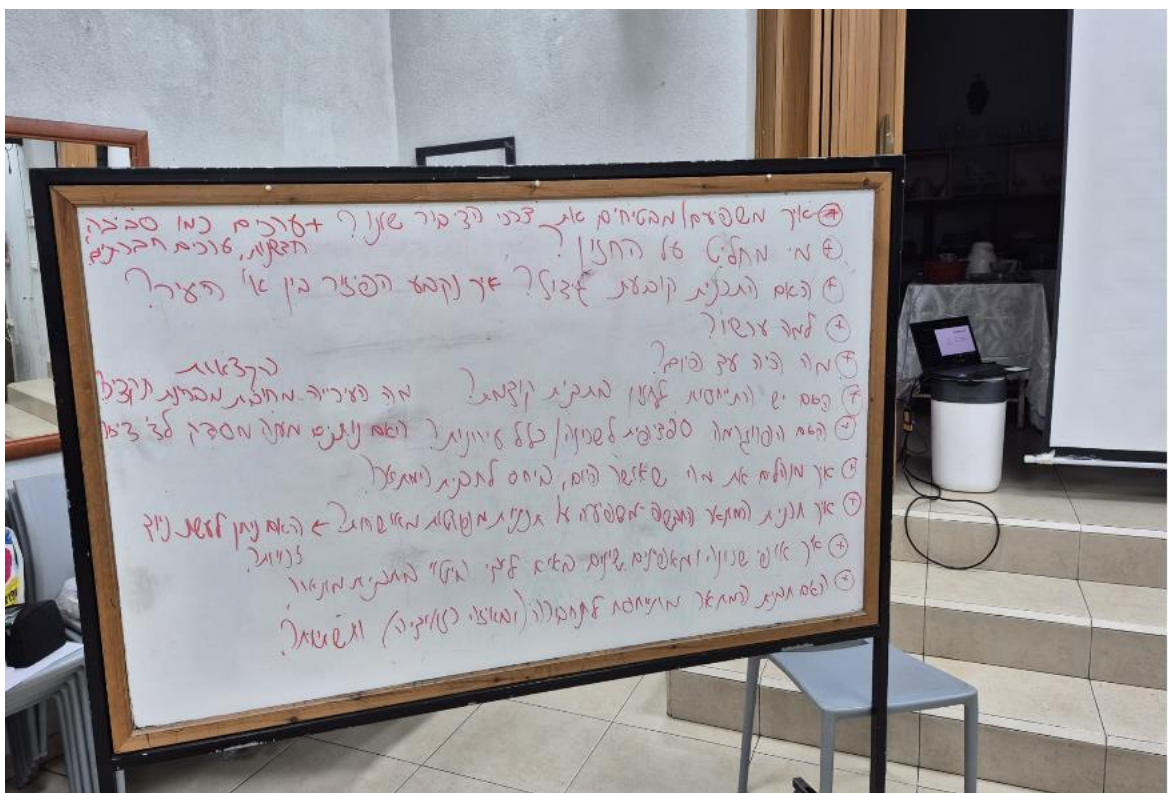 איך משפיעים/מבטיחים את צרכי הציבור שלנו? + ערכים כמו סביבה
חדשנות, ערכים חברתיים
מי מחליט על החזון?
האם התכנית קובעת גידול? איך נקבע הפיזור בין א' העיר?
למה עכשיו?
מה היה עד היום?
הקצאות
האם יש התייחסות לחזון מתכנית קודמת? מה העירייה מחויבת מבחינת תקציב?
האם הפרוגרמה ספציפית לשכונה/כלל עירונית? האם נותנים מענה מספק לצ' ציבור
איך מנהלים את מה שאושר היום, ביחס לתכנית המתאר?
איך תכנית המתאר משפיעה על תכניות מפורטות מאושרות? ← האם ניתן לעשות ניוד
זכויות?
איך אופי שכונה ומאפיינים שונים באים לידי ביטוי בתכנית מתאר
האם תכנית המתאר מתייחסת לתחבורה ותשתיות?